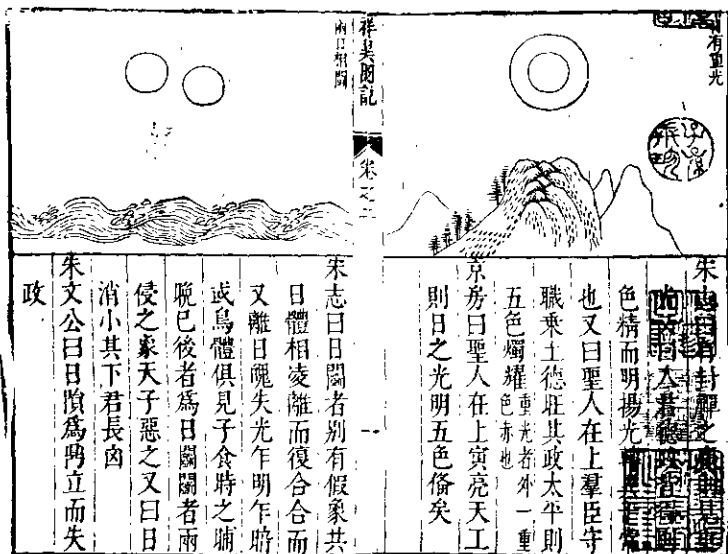 日有重光
宋志曰有封禪之
曰人君德
色精而明揚光
也又曰聖人在上羣臣守
職乗土德旺其政太平則
五色燭耀重光者外一重色赤也
京房曰聖人在上寅亮天工
則日之光明五色俻矣
祥異圖記
卷之二
一
兩日相鬪
宋志曰日鬪者别有假象共
日體相凌離而復合合而
又離日魄失光乍明乍暗
或鳥體俱見子食時之晡
晚已後者為日鬪鬪者兩
侵之象天子惡之又曰日
消小其下君長凶
朱文公曰日隕為嗣立而失
政